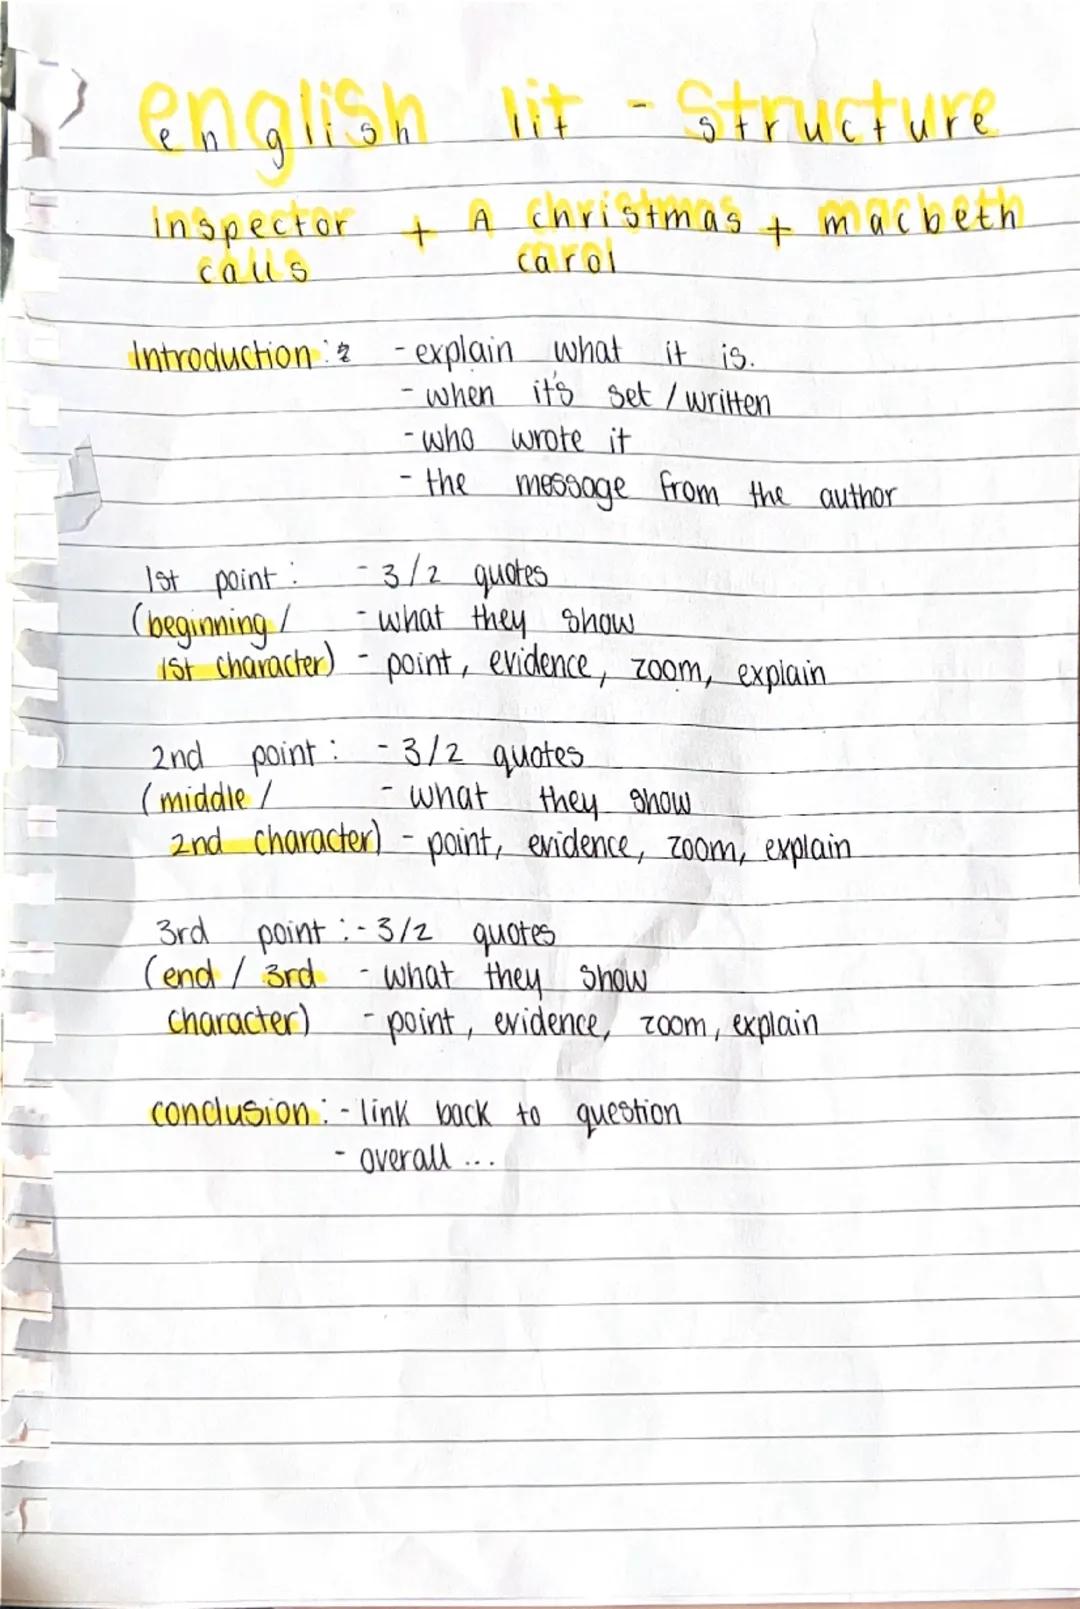 english lit - structure
inspector + A christmas + macbeth
calls carol
Introduction : - explain what it is.
- when it's set / written
- who wrote it
- the message from the author
1st point : - 3/2 quotes
(beginning / - what they show
1st character) - point, evidence, zoom, explain
2nd point : - 3/2 quotes
(middle / - what they show
2nd character) - point, evidence, zoom, explain
3rd point : - 3/2 quotes
(end / 3rd - what they show
character) - point, evidence, zoom, explain
conclusion : - link back to question
- overall ...